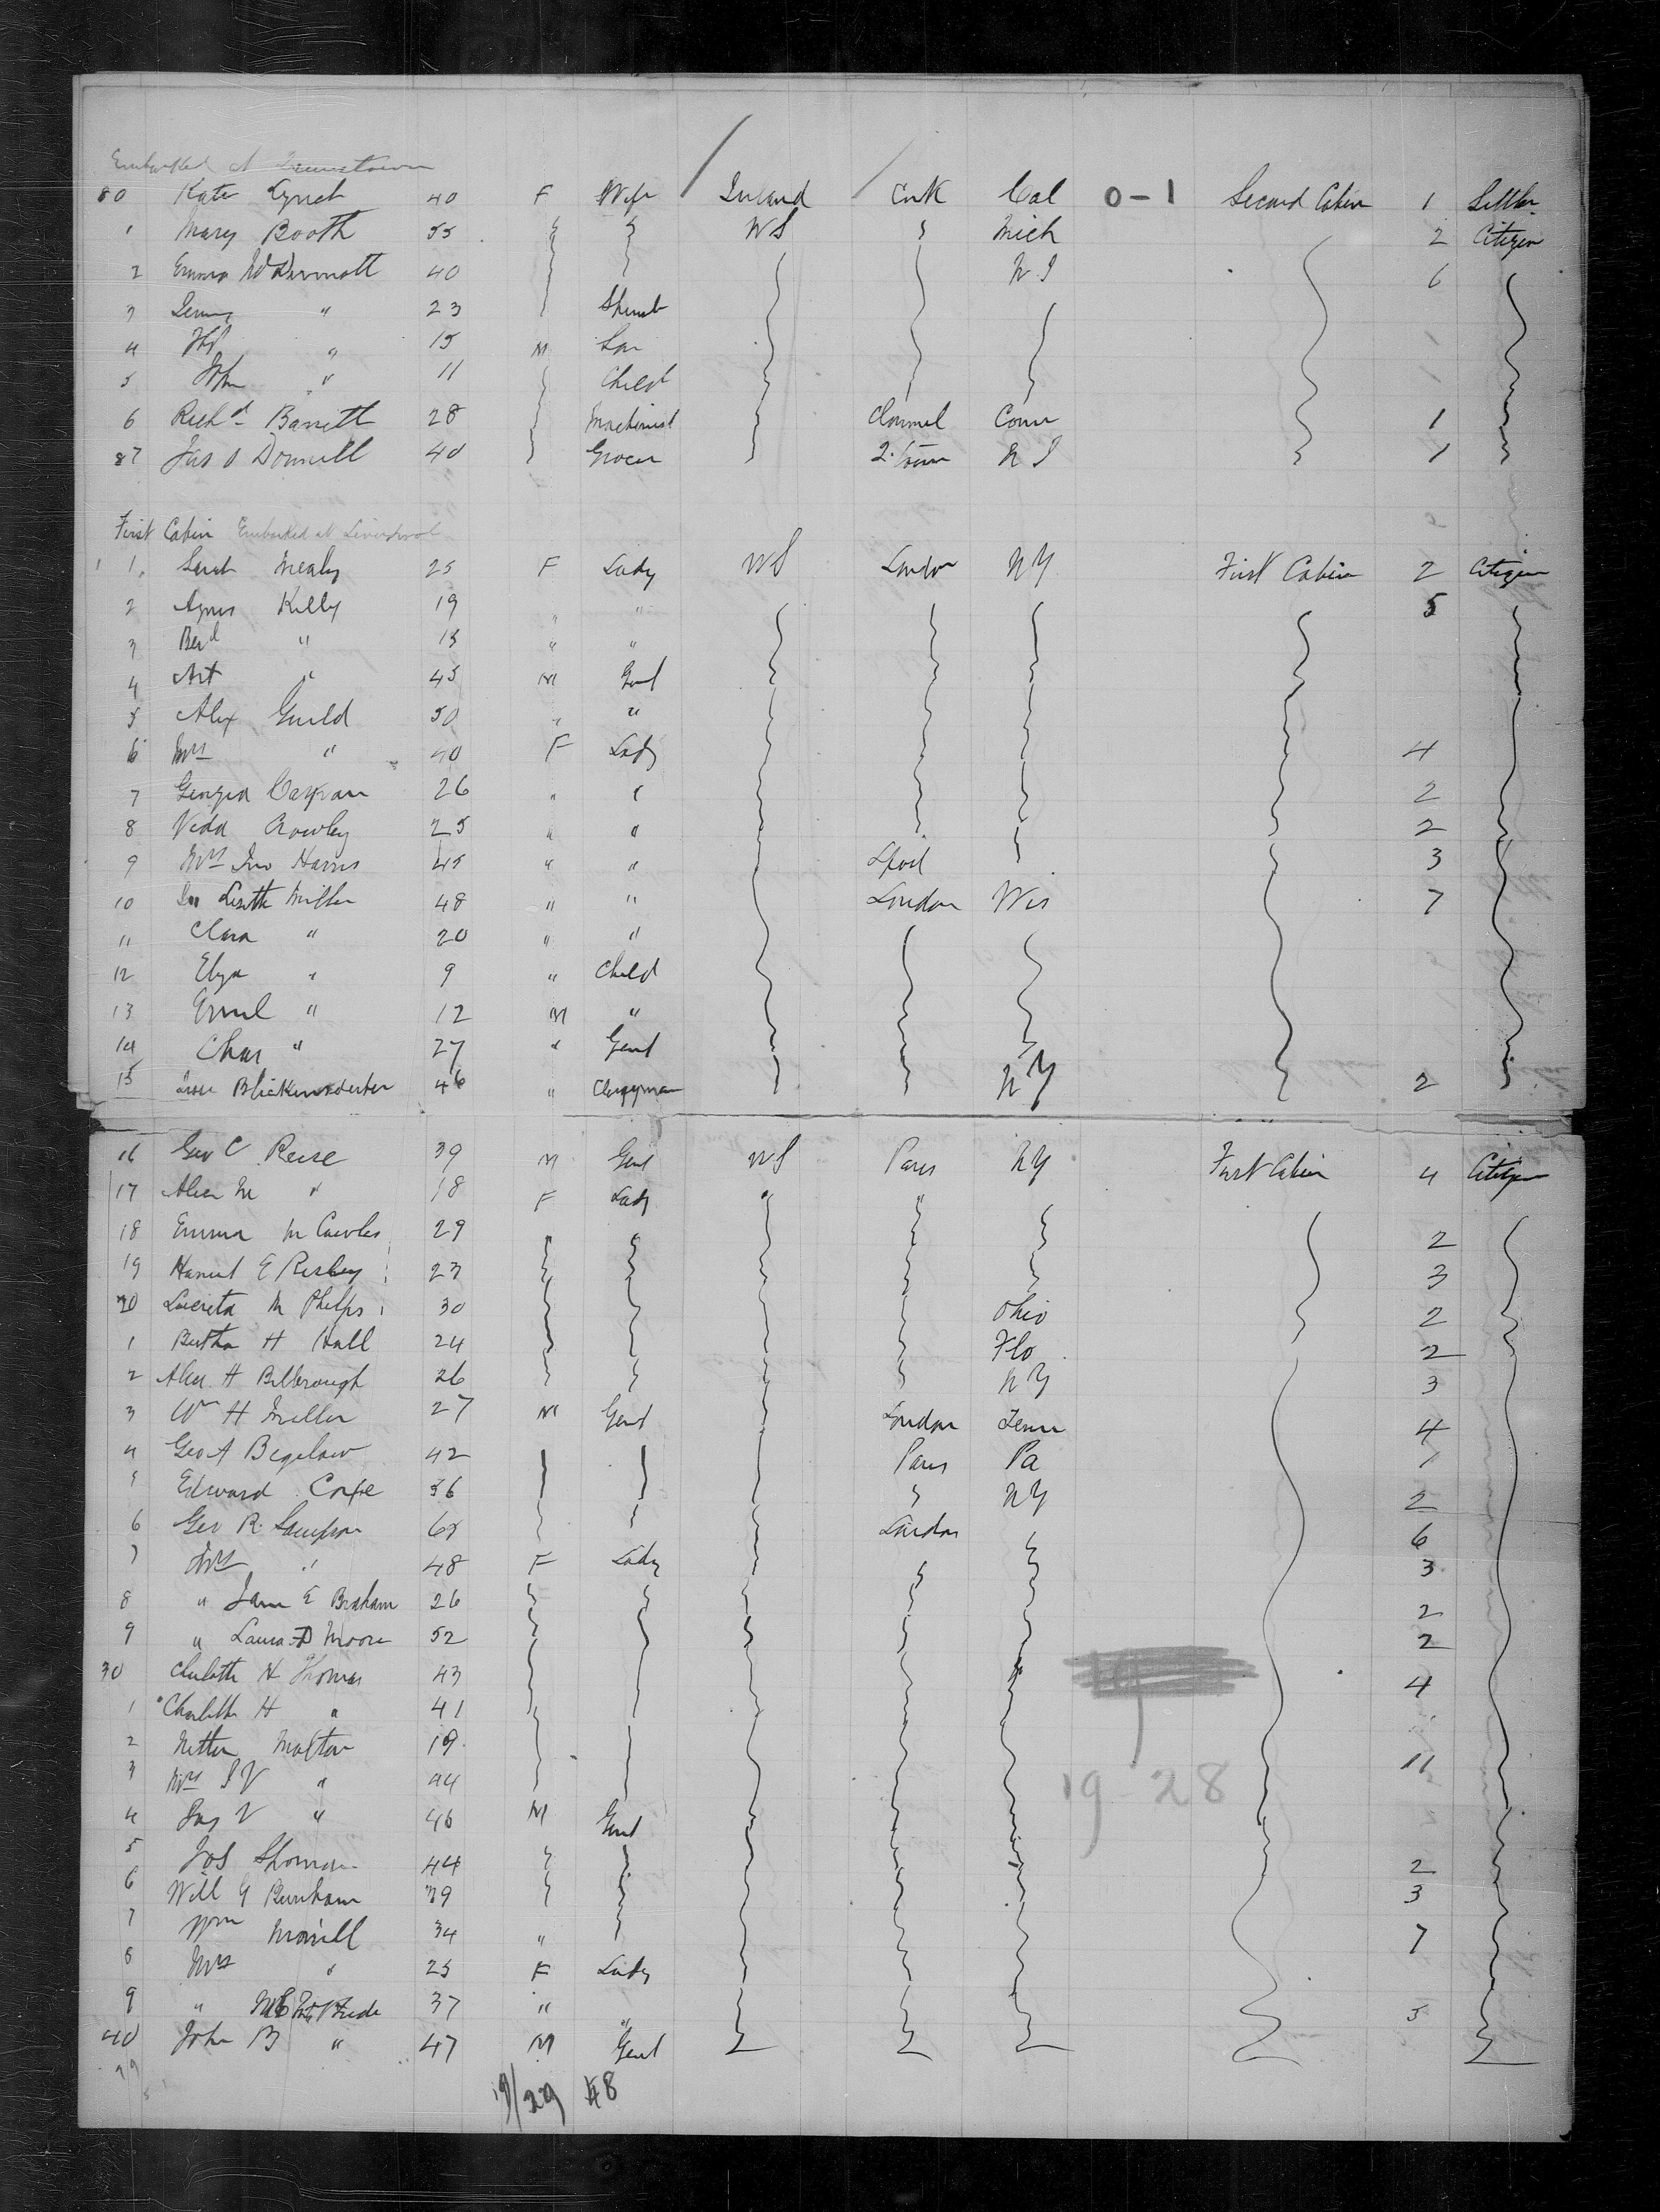 Embarked at Queenstown
80 Kate Lynch 40 F Wife Ireland Cork Cal 0-1 Second Cabin 1 Settler
1 Mary Booth 55 US Mich 2 Citizen
2 Emma McDermott 40 N.J 6
3 " 23
4 " 15 M Son
5 John " 11 Child
6 Richd Barrett 28 Machinist Clonmel Conn 1
87 Jas O Donnell 40 Grocer Q.town N J 1
First Cabin Embarked at Liverpool
1 1. Sarah Mealy 25 F Lady US London NY First Cabin 2 Citizen
2 Agnes Kelly 19 " " 5
3 " 13 " "
4 Art " 45 M Gent
5 Alex Guild 50 " "
6 Mrs " 40 F Lady 4
7 Georgia 26 " " 2
8 Crowley 25 " " 2
9 Mrs Jno Harris 45 " " Lpool 3
10 Miller 48 " " London Wis 7
11 Clara " 20 " "
12 Elza " 9 " Child
13 Emil " 12 M "
14 Chas " 27 " Gent
15 Blickensderfer 46 " Clergyman NY 2
16 Geo C Reese 39 M Gent US Paris NY First Cabin 4 Citizen
17 Alice M " 18 F Lady " "
18 Emma M Cowles 29 " 2
19 Harriet E Risley 23 3
20 Lucreta M Phelps 30 Ohio 2
1 Bertha H Hall 24 Flo 2
2 Alex. H Bilbrough 26 NY 3
3 Wm H Miller 27 M Gent London Tenn 4
4 Geo A Bigelow 42 Paris Pa 1
5 Edward Coxe 36 NY 2
6 Geo R. Sampson 65 London 6
7 Mrs " 48 F Lady 3
8 " Jane E Braham 26 2
9 " Laura D Moore 52 2
30 H Thomas 43 4
1 Charlotte H " 41
2 Molton 19
3 Mrs J V " 44 11
19 28
4 Jas V " 46 M Gent
5 Jos 44 2
6 Will G Burnham 39 3
7 Wm Morrill 34 " 7
8 Mrs " 25 F Lady
9 " 37 " " 5
40 John B " 47 M Gent
19/29 48